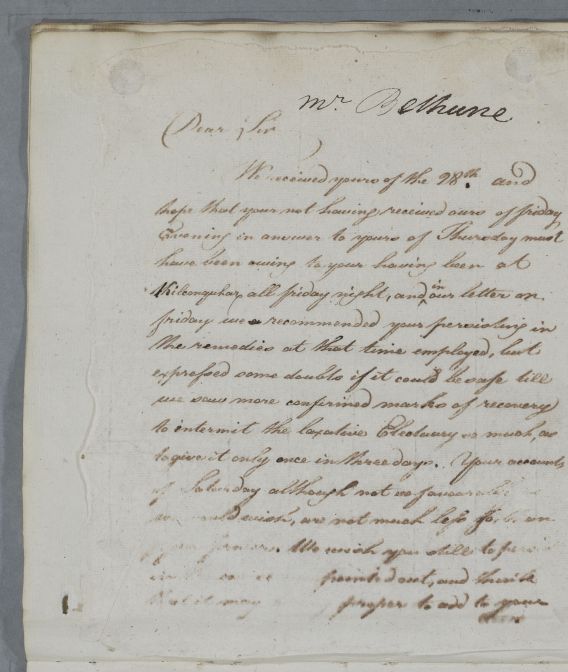 Mr Bethune
Dear Sir
We received yours of the 28th and
hope that your not having received ours of friday
Evening in answer to yours of Thursday must
have been owing to your having been at
Kilconquhar all friday night, and in our letter on
friday we recommended your persisting in
the remedies at that time employed, but
expressed some doubts if it could be safe till
we saw more confirmed marks of recovery
to intermit the laxative Electuary so much, as
to give it only once in three days. Your accounts
of Saturday although not so favourable
would wish, are not much less so than
former. We wish you still to
pointed out, and think
that it may proper to add to your